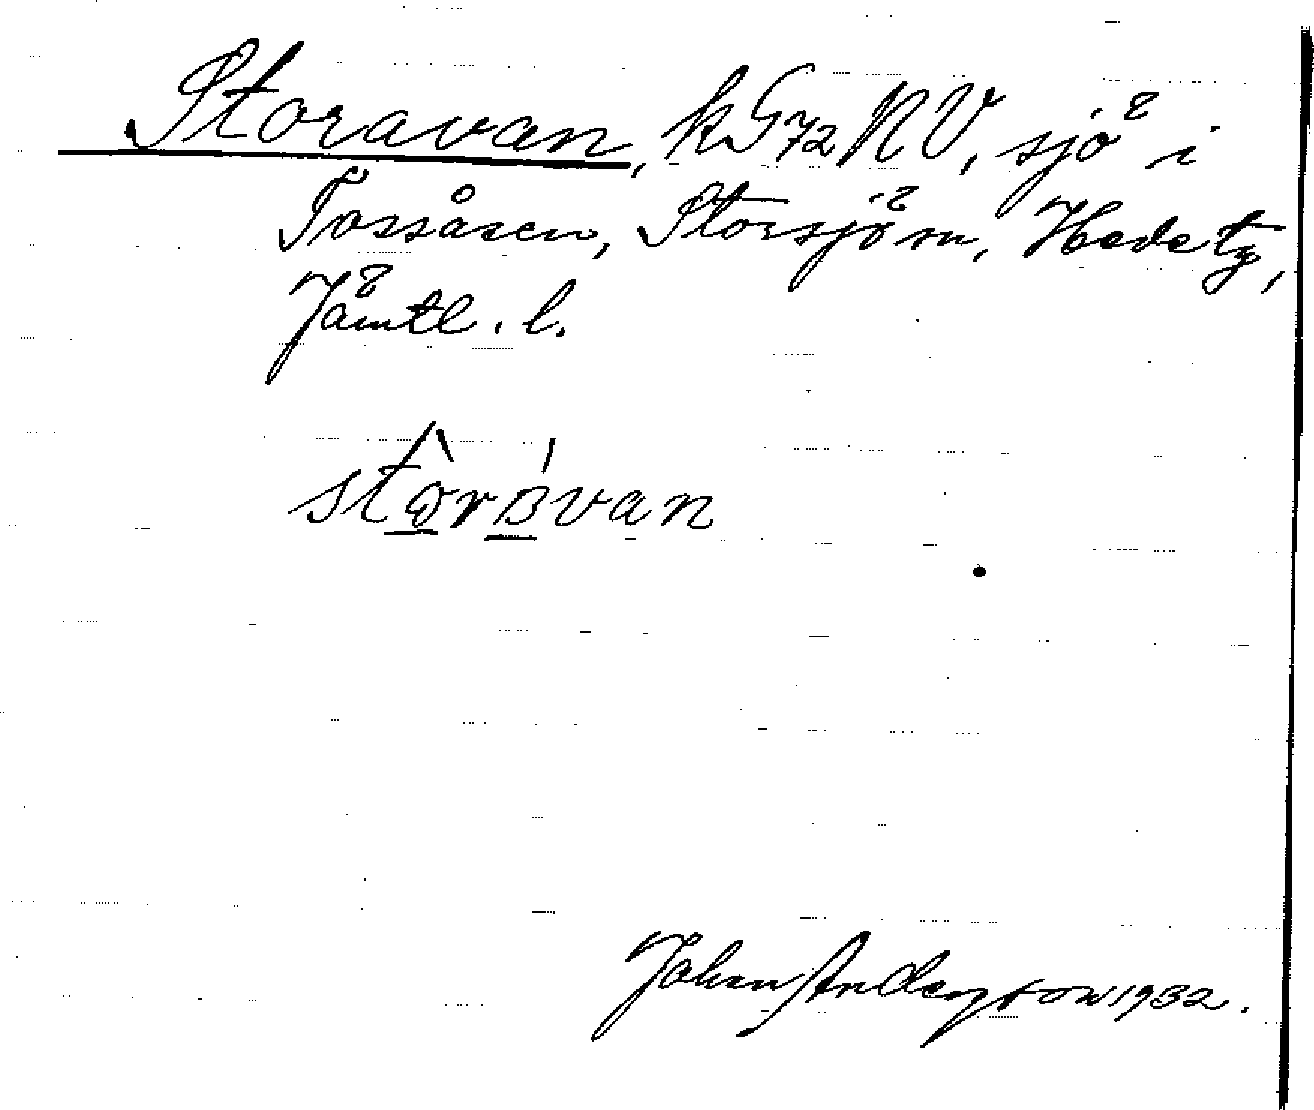 Storavan, k G 72 NV, sjö i
Tossåsen, Storsjö sn, Hede tg,
Jämtl. l.
storavan
Johan Andersson 1932.